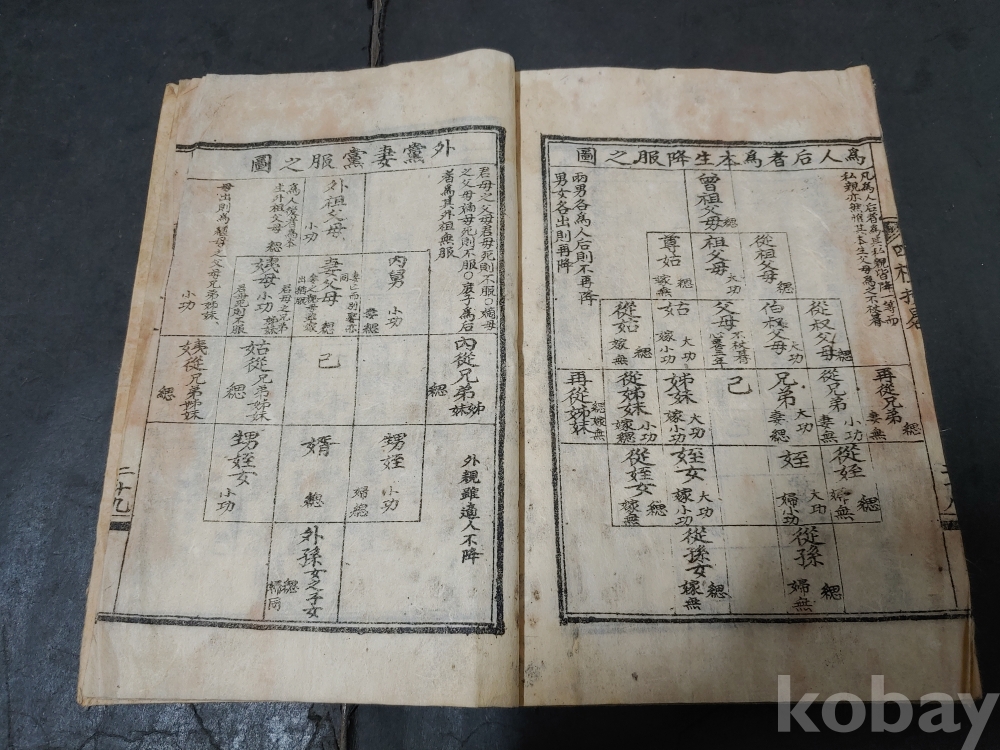 爲人后者爲本生降服之圖
凡爲人后者爲其私親皆降一等而
私親亦然惟其本生父母爲之不杖朞
兩男各爲人后則不再降
男女各出則再降
曾祖父母 緦
從祖父母 緦
祖父母 大功
尊姑 緦 嫁無
從叔父母 緦
伯叔父母 大功
父母 不杖朞 心喪三年
姑 大功 嫁小功
從姑 緦 嫁無
再從兄弟 緦 妻無
從兄弟 小功 妻無
兄弟 大功 妻緦
己
姊妹 大功 嫁小功
從姊妹 小功 嫁緦
再從姊妹 緦 嫁無
從姪 緦 婦無
姪 大功 婦小功
姪女 大功 嫁小功
從姪女 緦 嫁無
從孫 緦 婦無
從孫女 緦 嫁無
外黨妻黨服之圖
君母之父母君母死則不服○嫡母
之父母嫡母死則不服○庶子爲后
者爲其外祖無服
外祖父母 小功
爲人後者爲本
生外祖父母 緦
母出則爲繼母之父母兄弟姊妹
小功
內舅 小功 妻緦
妻父母 緦
姨母 小功
君母之兄弟
姊妹
君母死則不服
內從兄弟姊妹 緦
己
姑從兄弟姊妹 緦
姨從兄弟姊妹 緦
甥姪 小功 婦緦
婿 緦
甥姪女 小功
外親雖適人不降
外孫女之子女 緦
婦同
二十九